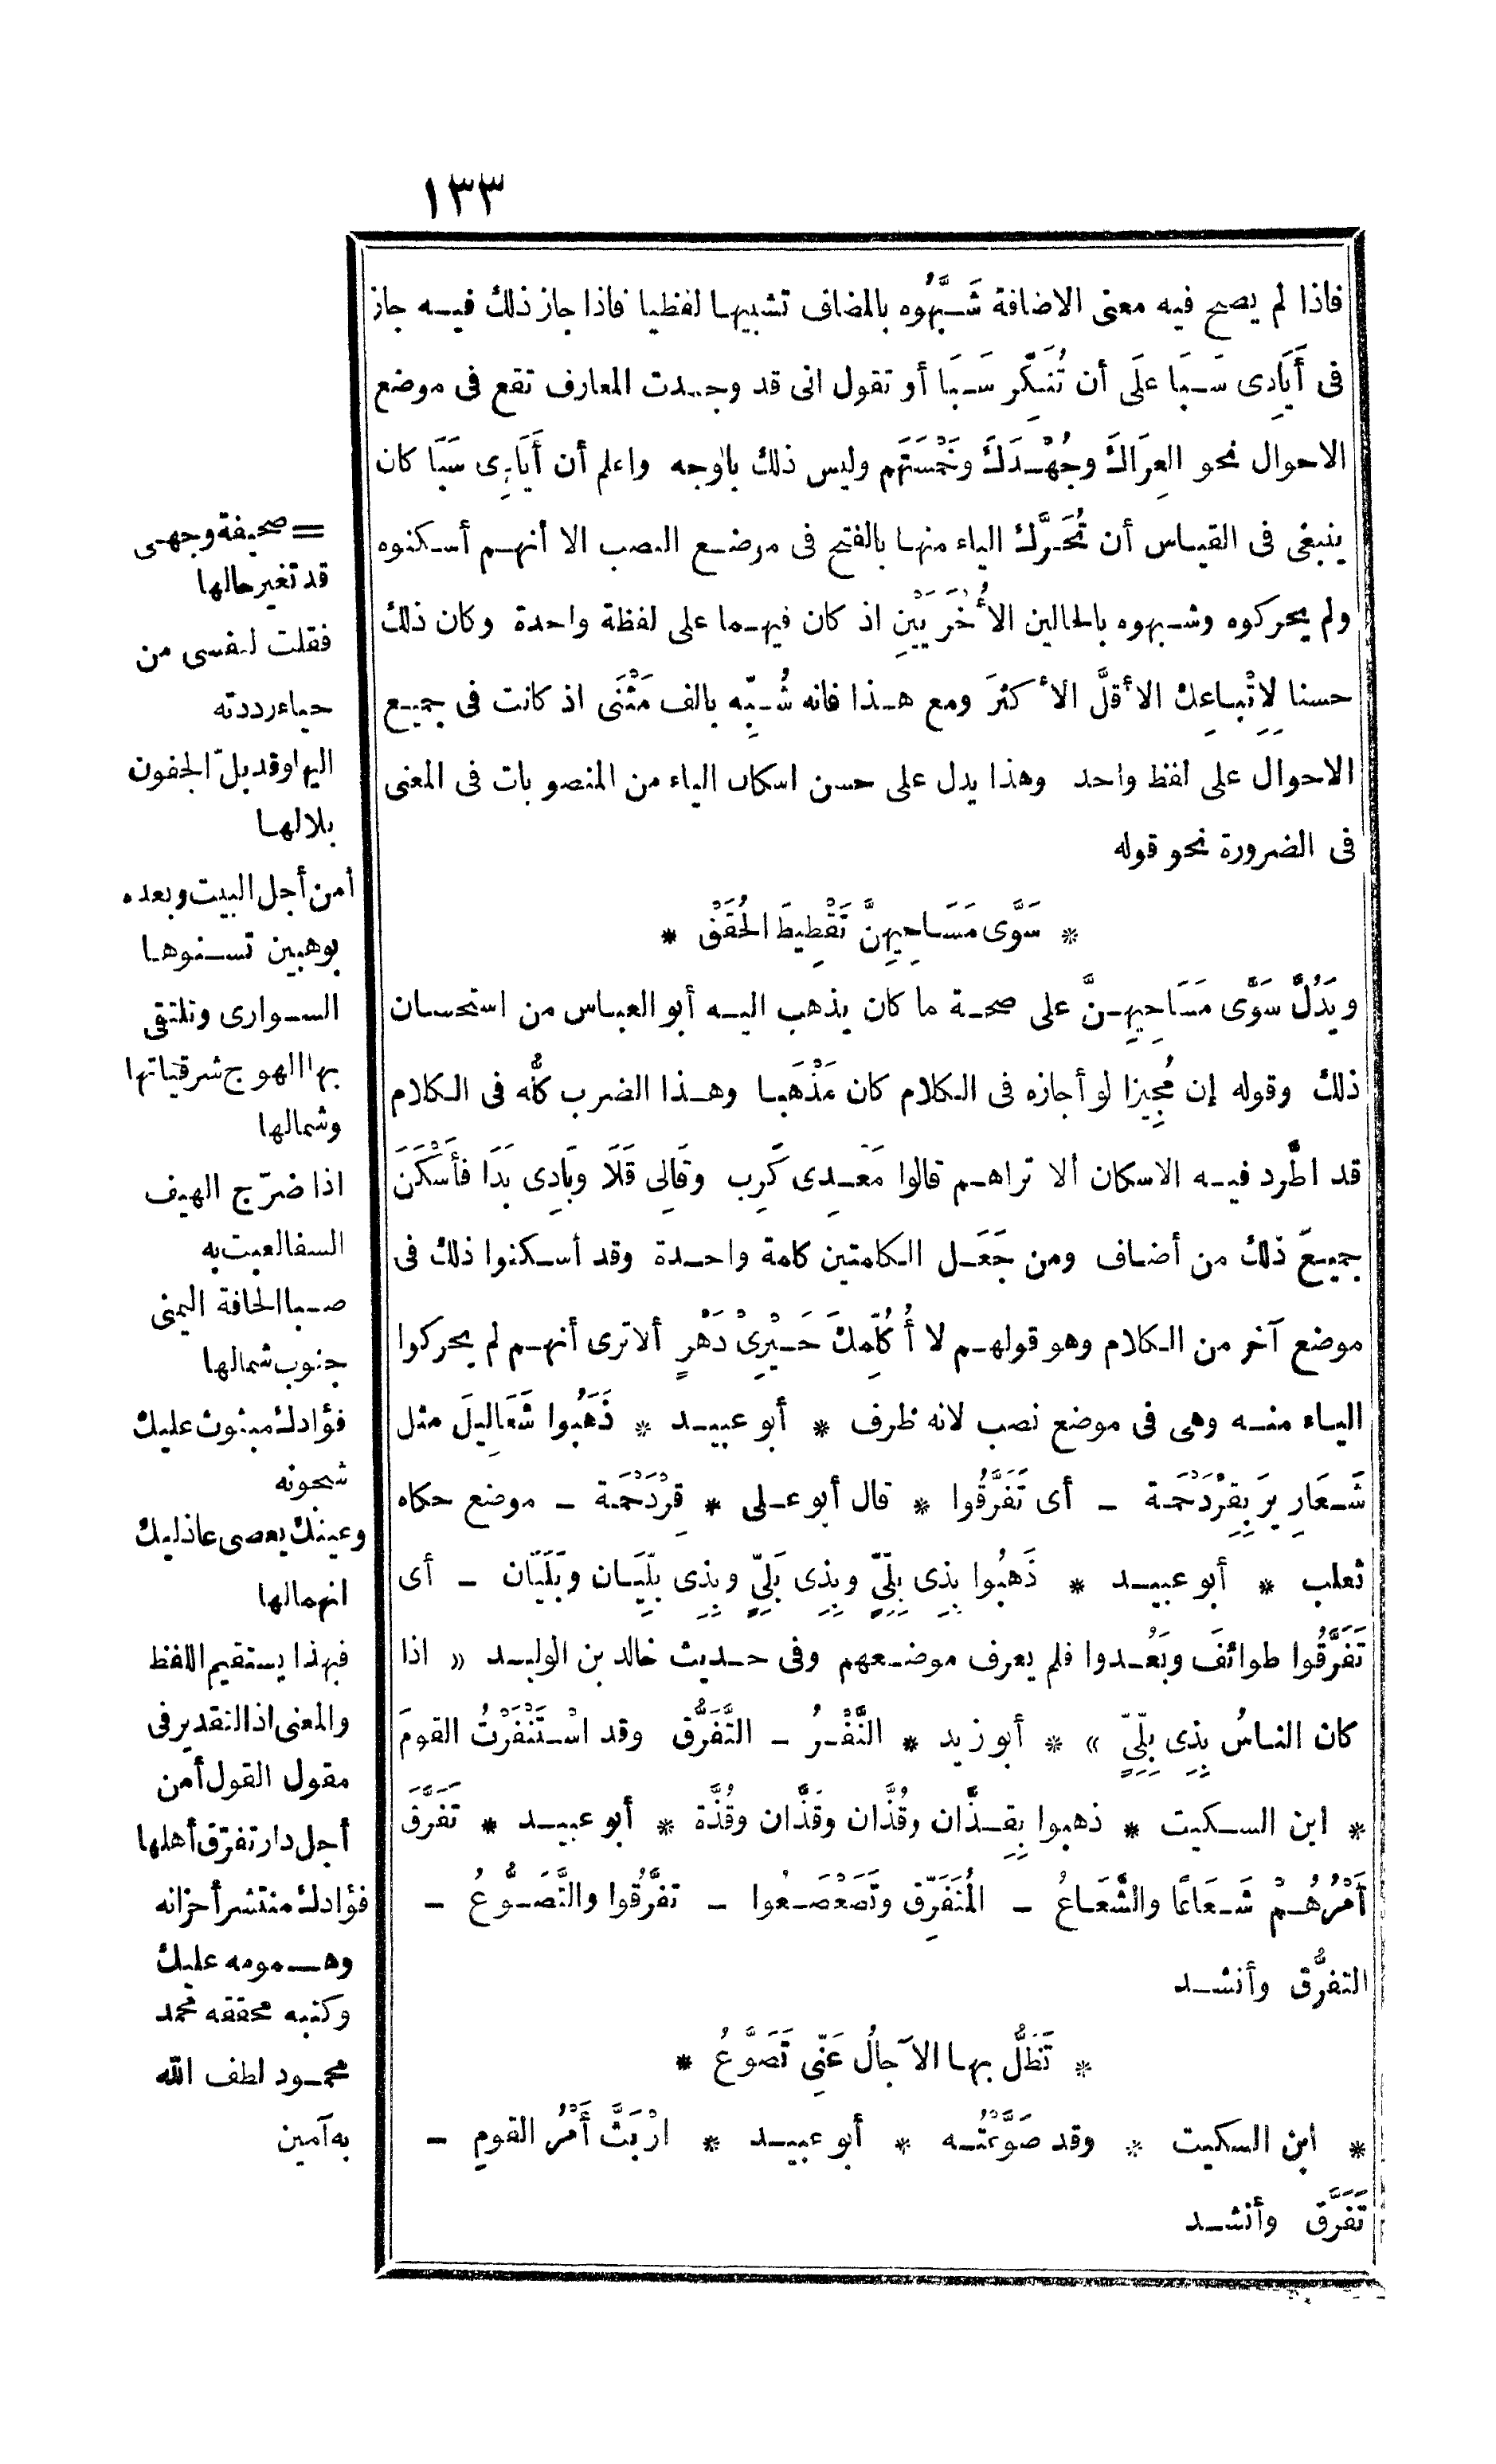 ١٣٣
فاذا لم يصح فيه معنى الاضافة شَبَّهُوه بالمضاف تشبيها لفظيا فاذا جاز ذلك فيه جاز
فى أَيَادِى سَبَا علَى أن تُنَكِّر سَبَا أو تقول انى قد وجدت المعارف تقع فى موضع
الاحوال نحو العِرَاكَ وجُهْدَكَ وخَمْسَتَهم وليس ذلك بالوجه واعلم أن أَيَادِى سَبَا كان
ينبغى فى القياس أن تُحَرَّك الياء منها بالفتح فى موضع النصب الا أنهم أسكنوه
ولم يحركوه وشبهوه بالحالين الأُخْرَيَيْنِ اذ كان فيهما على لفظة واحدة وكان ذلك
حسنا لِاِتْباعِك الأقلَّ الأكثرَ ومع هذا فانه شُبِّه بالف مَثْنَى اذ كانت فى جميع
الاحوال على لفظ واحد وهذا يدل على حسن اسكان الياء من المنصوبات فى المعنى
فى الضرورة نحو قوله
* سَوَّى مَسَاحِيهِنَّ تَقْطِيطَ الحُقَقْ *
ويَدُلُّ سَوَّى مَسَاحِيهِنَّ على صحة ما كان يذهب اليه أبو العباس من استحسان
ذلك وقوله إن مُجِيزا لو أجازه فى الكلام كان مَذْهَبا وهذا الضرب كلُّه فى الكلام
قد اطَّرد فيه الاسكان ألا تراهم قالوا مَعْدِى كَرِب وقَالِى قَلَا وبَادِى بَدَا فأَسْكَنَ
جميعَ ذلك من أضاف ومن جَعَل الكلمتين كلمة واحدة وقد أسكنوا ذلك فى
موضع آخر من الكلام وهو قولهم لا أُكَلِّمكَ حَيْرِىْ دَهْرٍ ألا ترى أنهم لم يحركوا
الياء منه وهى فى موضع نصب لانه ظرف * أبو عبيد * ذَهَبُوا شَعَالِيلَ مثل
شَعَارِيرَ بِقِرْدَحْمَة - أى تَفَرَّقُوا * قال أبو على * قِرْدَحْمَة - موضع حكاه
ثعلب * أبو عبيد * ذَهَبُوا بِذِى بِلِّىٍّ وبِذِى بَلِىٍّ وبِذِى بِلِّيَان وبَلَيَّان - أى
تَفَرَّقُوا طوائفَ وبَعُدوا فلم يعرف موضعهم وفى حديث خالد بن الوليد « اذا
كان الناسُ بِذِى بِلِّىٍّ » * أبو زيد * النَّفْرُ - التَّفَرُّق وقد اسْتَنْفَرْتُ القومَ
* ابن السكيت * ذهبوا بِقِذَّان وقُذَّان وقَذَّان وقُذَّة * أبو عبيد * تَفَرَّقَ
أَمْرُهُمْ شَعَاعًا والشَّعَاعُ - المُتَفَرِّق وتَصَعْصَعُوا - تفرَّقُوا والتَّصَوُّعُ -
التفرُّق وأنشد
* تَظَلُّ بها الآجالُ عَنِّى تَصَوَّعُ *
* ابن السكيت * وقد صَوَّعْتُه * أبو عبيد * ارْبَثَّ أَمْرُ القومِ -
تَفَرَّق وأنشد
= صحيفة وجهى
قد تغير حالها
فقلت لنفسى من
حياء رددته
اليها وقد بلّ الجفون
بلالها
أمن أجل البيت وبعده
بوهبين تسنوها
السوارى وتلتقى
بها الهوج شرقياتها
وشمالها
اذا ضرّج الهيف
السفا لعبت به
صبا الحافة اليمنى
جنوب شمالها
فؤادك مبثوث عليك
شجونه
وعينك يعصى عاذليك
انهمالها
فبهذا يستقيم اللفظ
والمعنى اذ التقدير فى
مقول القول أمن
أجل دار تفرّق أهلها
فؤادك منتشر أحزانه
وهمومه عليك
وكتبه محققه محمد
محمود لطف الله
به آمين